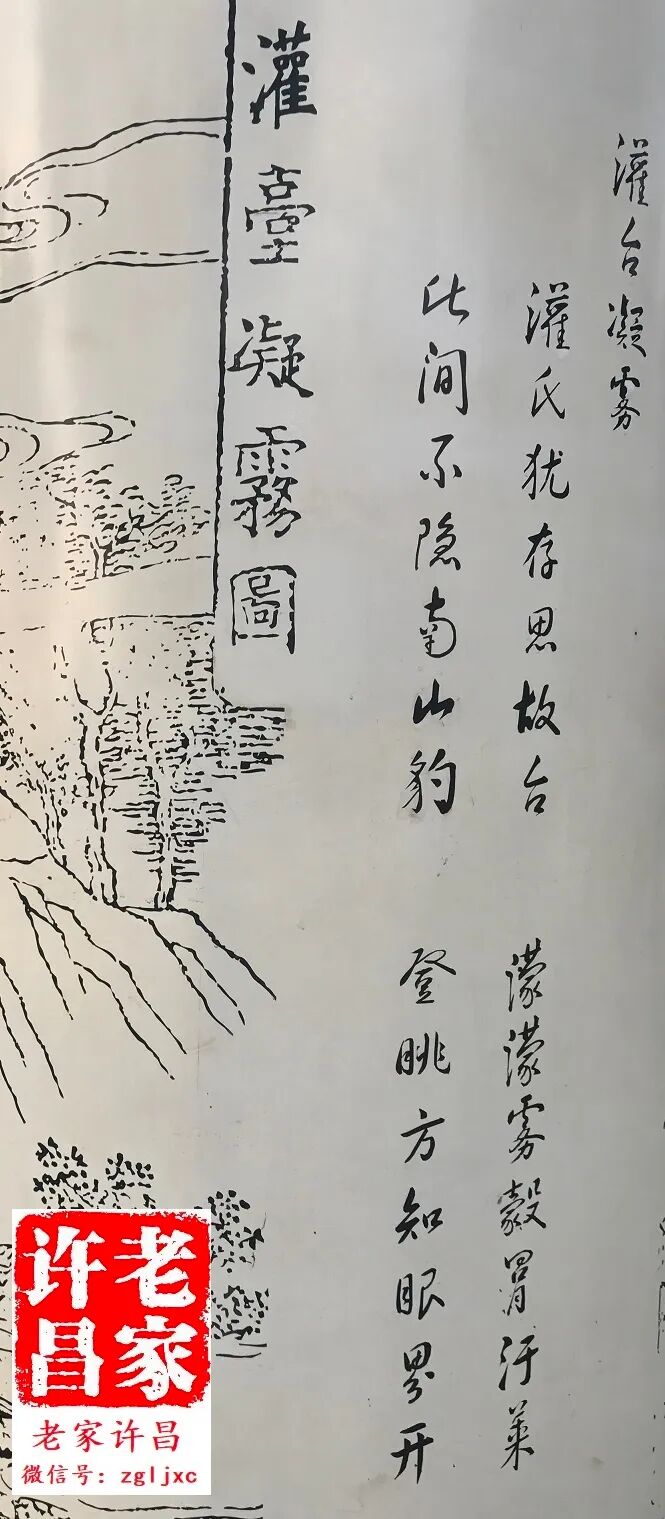 灌台凝雾
灌氏犹存思故台
濛濛雾縠冒汙莱
此间不隐南山豹
登眺方知眼界开
灌臺凝霧圖
老家许昌
老家许昌
微信号：zgljxc